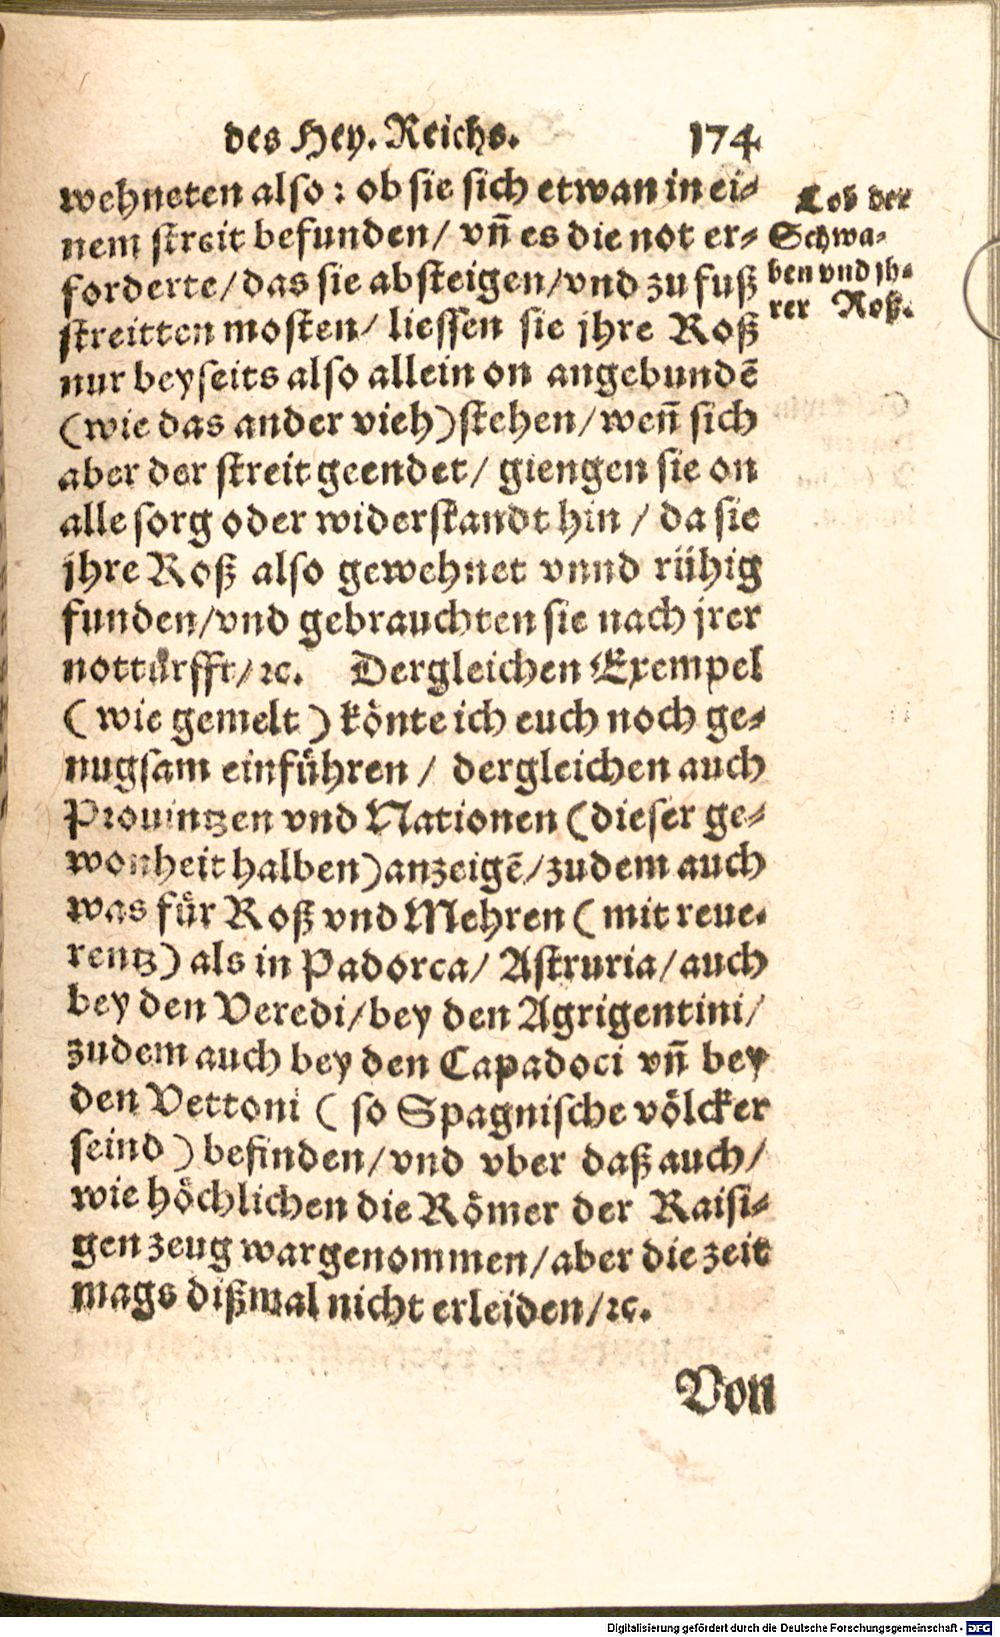 des Hey. Reichs. 174
wehneten also: ob sie sich etwan in ei-
nem streit befunden/ vñ es die not er-
forderte/ das sie absteigen/ vnd zu fuß
streitten mosten/ liessen sie jhre Roß
nur beyseits also allein on angebundẽ
(wie das ander vieh) stehen/ weñ sich
aber der streit geendet/ giengen sie on
alle sorg oder widerstandt hin / da sie
jhre Roß also gewehnet vnnd rühig
funden/ vnd gebrauchten sie nach jrer
notturfft/ ꝛc. Dergleichen Exempel
(wie gemelt) könte ich euch noch ge-
nugsam einführen / dergleichen auch
Prouintzen vnd Nationen (dieser ge-
wonheit halben) anzeigẽ/ zudem auch
was für Roß vnd Mehren (mit reue-
rentz) als in Padorca/ Astruria/ auch
bey den Veredi/ bey den Agrigentini/
zudem auch bey den Capadoci vñ bey
den Vettoni (so Spagnische völcker
seind) befinden/ vnd vber daß auch/
wie höchlichen die Römer der Raisi-
gen zeug wargenommen/ aber die zeit
mags dißmal nicht erleiden/ ꝛc.
Von
Lob der
Schwa-
ben vnd jh-
rer Roß.
Digitalisierung gefördert durch die Deutsche Forschungsgemeinschaft - DFG